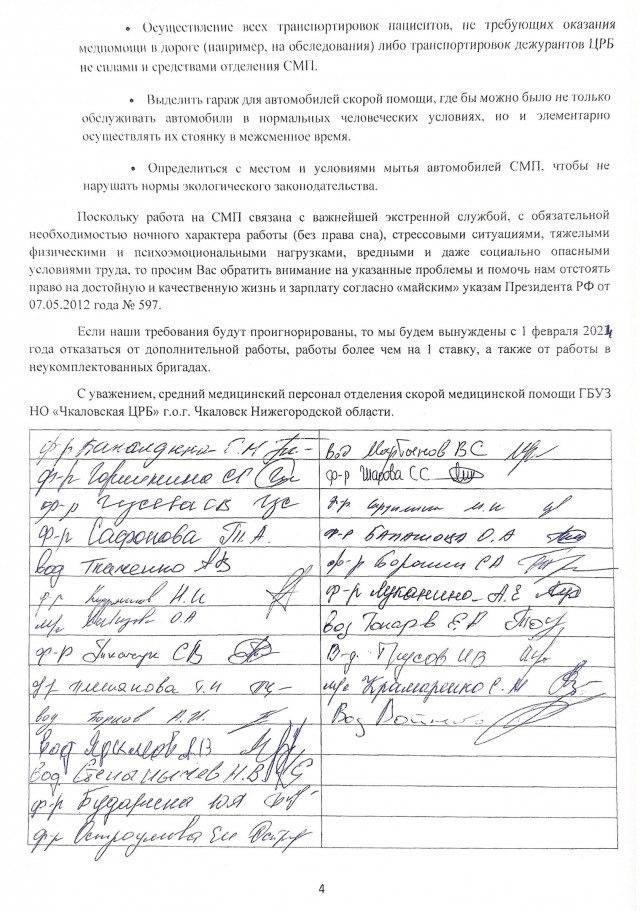 • Осуществление всех транспортировок пациентов, не требующих оказания
медпомощи в дороге (например, на обследования) либо транспортировок дежурантов ЦРБ
не силами и средствами отделения СМП.
• Выделить гараж для автомобилей скорой помощи, где бы можно было не только
обслуживать автомобили в нормальных человеческих условиях, но и элементарно
осуществлять их стоянку в межсменное время.
• Определиться с местом и условиями мытья автомобилей СМП, чтобы не
нарушать нормы экологического законодательства.
Поскольку работа на СМП связана с важнейшей экстренной службой, с обязательной
необходимостью ночного характера работы (без права сна), стрессовыми ситуациями, тяжелыми
физическими и психоэмоциональными нагрузками, вредными и даже социально опасными
условиями труда, то просим Вас обратить внимание на указанные проблемы и помочь нам отстоять
право на достойную и качественную жизнь и зарплату согласно «майским» указам Президента РФ от
07.05.2012 года № 597.
Если наши требования будут проигнорированы, то мы будем вынуждены с 1 февраля
года отказаться от дополнительной работы, работы более чем на 1 ставку, а также от работы в
неукомплектованных бригадах.
С уважением, средний медицинский персонал отделения скорой медицинской помощи ГБУЗ
НО «Чкаловская ЦРБ» г.о.г. Чкаловск Нижегородской области.
ф-р
ф-р
ф-р Гусева СВ
ф-р Сафонова Т.А.
вод Ткаченко АВ
ф-р Н.И
О.А
ф-р Ткачук СВ
Плеханова Т.И
вод А.И.
вод
вод Степанычев Н.В
ф-р Бударина ЮА
ф-р Остроумова Ен
вод Мартынов ВС
ф-р Шарова СС
ф-р М.И
ф-р О.А
ф-р СА
ф-р Луканина А.Е
вод Токарв Е.А
В-д. Трусов ИВ
Крамаренко С.М
Вод
4